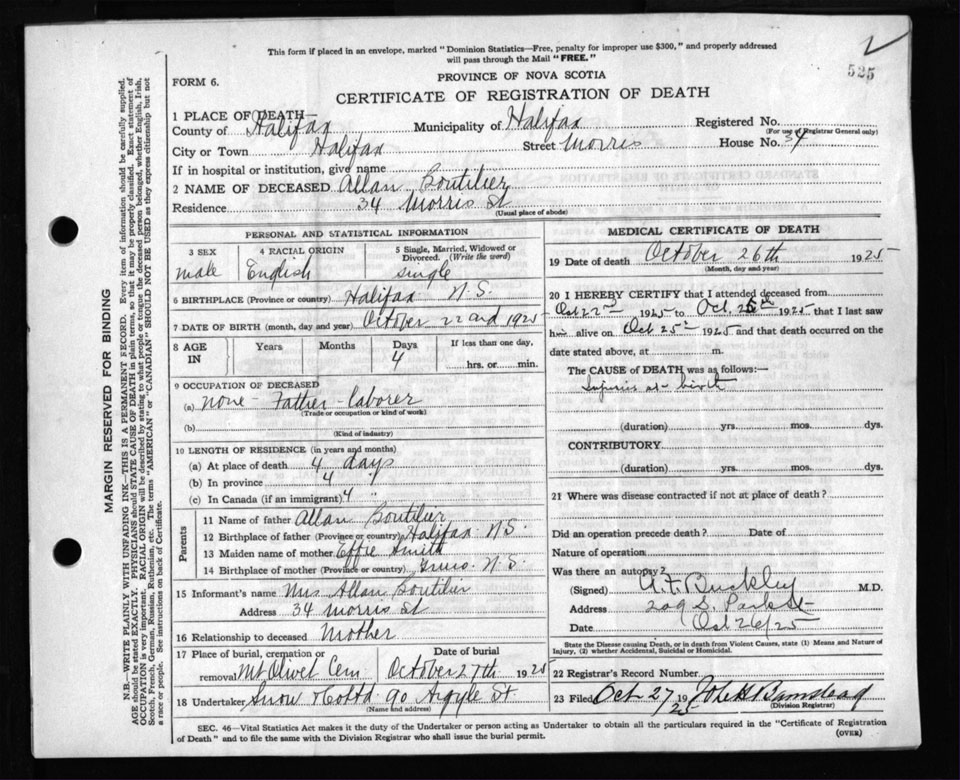 This form if placed in an envelope, marked "Dominion Statistics—Free, penalty for improper use $300," and properly addressed
will pass through the Mail "FREE."
525
FORM 6.
PROVINCE OF NOVA SCOTIA
CERTIFICATE OF REGISTRATION OF DEATH
1 PLACE OF DEATH
County of Halifax Municipality of Halifax Registered No.
(For use of Registrar General only)
City or Town Halifax Street Morris House No. 34
If in hospital or institution, give name
2 NAME OF DECEASED Allan Boutilier
Residence 34 Morris St
(Usual place of abode)
PERSONAL AND STATISTICAL INFORMATION
3 SEX 4 RACIAL ORIGIN 5 Single, Married, Widowed or Divorced. (Write the word)
male English single
6 BIRTHPLACE (Province or country) Halifax N.S.
7 DATE OF BIRTH (month, day and year) October 22nd 1925
8 AGE IN Years Months Days If less than one day,
4 hrs. or min.
9 OCCUPATION OF DECEASED
(a) none - Father - laborer
(Trade or occupation or kind of work)
(b)
(Kind of industry)
10 LENGTH OF RESIDENCE (in years and months)
(a) At place of death 4 days
(b) In province 4 "
(c) In Canada (if an immigrant) 4 "
Parents
11 Name of father Allan Boutilier
12 Birthplace of father (Province or country) Halifax N.S.
13 Maiden name of mother Effie Smith
14 Birthplace of mother (Province or country) N.S.
15 Informant's name Mrs Allan Boutilier
Address 34 Morris St
16 Relationship to deceased Mother
17 Place of burial, cremation or removal Date of burial
Mt Olivet Cem October 27th 1925
18 Undertaker Snow & Co Ltd 90 Argyle St
(Name and address)
MEDICAL CERTIFICATE OF DEATH
19 Date of death October 26th 1925
(Month, day and year)
20 I HEREBY CERTIFY that I attended deceased from
Oct 22nd 1925 to Oct. 1925 that I last saw
him alive on Oct 25th 1925 and that death occurred on the
date stated above, at m.
The CAUSE of DEATH was as follows:—
Injuries at birth
(duration) yrs. mos. dys.
CONTRIBUTORY
(duration) yrs. mos. dys.
21 Where was disease contracted if not at place of death?
Did an operation precede death? Date of
Nature of operation
Was there an autopsy?
(Signed) A.F. Buckley M.D.
Address 209 S. Park St
Date Oct 26/25
State the Disease causing Death, or in death from Violent Causes, state (1) Means and Nature of
Injury, (2) whether Accidental, Suicidal or Homicidal.
22 Registrar's Record Number
23 Filed Oct 27 1925 Barnstead
(Division Registrar)
SEC. 46—Vital Statistics Act makes it the duty of the Undertaker or person acting as Undertaker to obtain all the particulars required in the "Certificate of Registration
of Death" and to file the same with the Division Registrar who shall issue the burial permit.
(OVER)
MARGIN RESERVED FOR BINDING
N.B.—WRITE PLAINLY WITH UNFADING INK—THIS IS A PERMANENT RECORD. Every item of information should be carefully supplied.
AGE should be stated EXACTLY. PHYSICIANS should STATE CAUSE OF DEATH in plain terms, so that it may be properly classified. Exact statement of
OCCUPATION is very important. RACIAL ORIGIN will be described by stating to what people or tongue the deceased person belonged, whether English, Irish,
Scotch, French, German, Russian, Ruthenian, etc. The terms "AMERICAN" or "CANADIAN" SHOULD NOT BE USED as they express citizenship but not
a race or people. See instructions on back of Certificate.